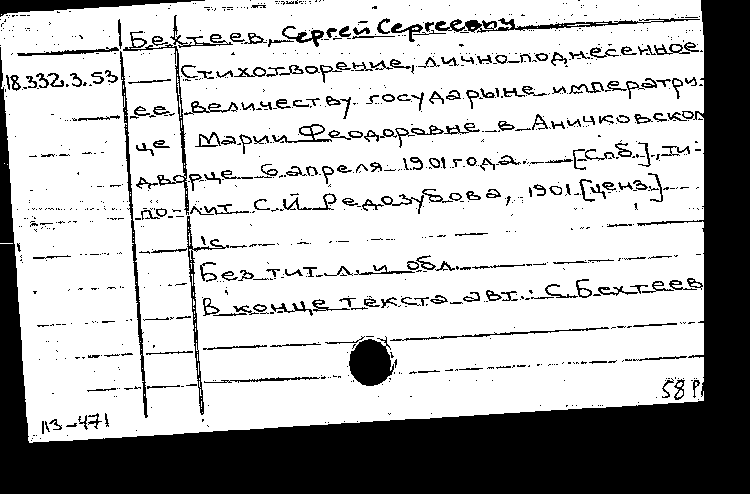 Бехтеев, Сергей Сергеевич
18.332.3.53 Стихотворение, лично поднесенное
ее величеству государыне императри-
це Марии Феодоровне в Аничковском
дворце 6 апреля 1901 года. [Спб.], ти-
по-лит. С.И. Редозубова, 1901 [ценз.].
1с.
Без тит. л. и обл.
В конце текста авт.: С. Бехтеев
58
ПЗ-471